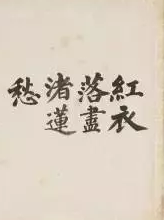 紅衣
落盡
渚蓮
愁